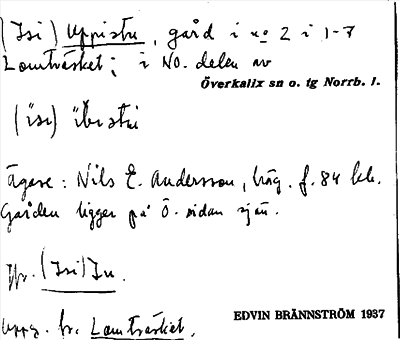 (Isi) Uppistu, gård i no 2 i 1-7
Lomträsket; i NO. delen av
Överkalix sn o. tg Norrb. l.
Ägare: Nils E. Andersson, f. 84
Gården ligger på Ö. sidan sjön.
Jfr. (Isi) In.
Uppg. fr. Lomträsket.
EDVIN BRÄNNSTRÖM 1937